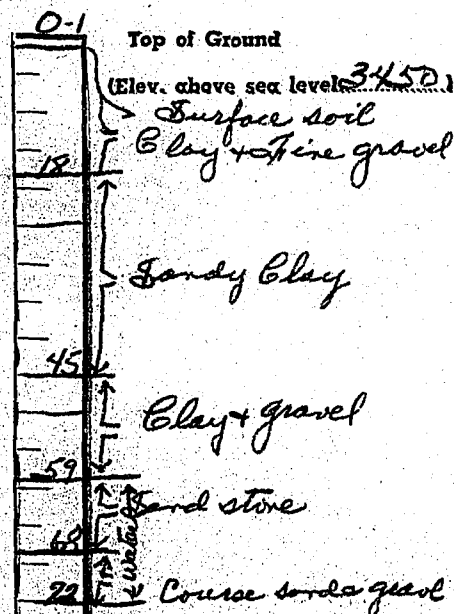 0-1
Top of Ground
(Elev. above sea level 3450)
Surface soil
Clay + Fine gravel
18
Sandy Clay
45
Clay + gravel
59
Sand stone
Water
68
Course sand & gravel